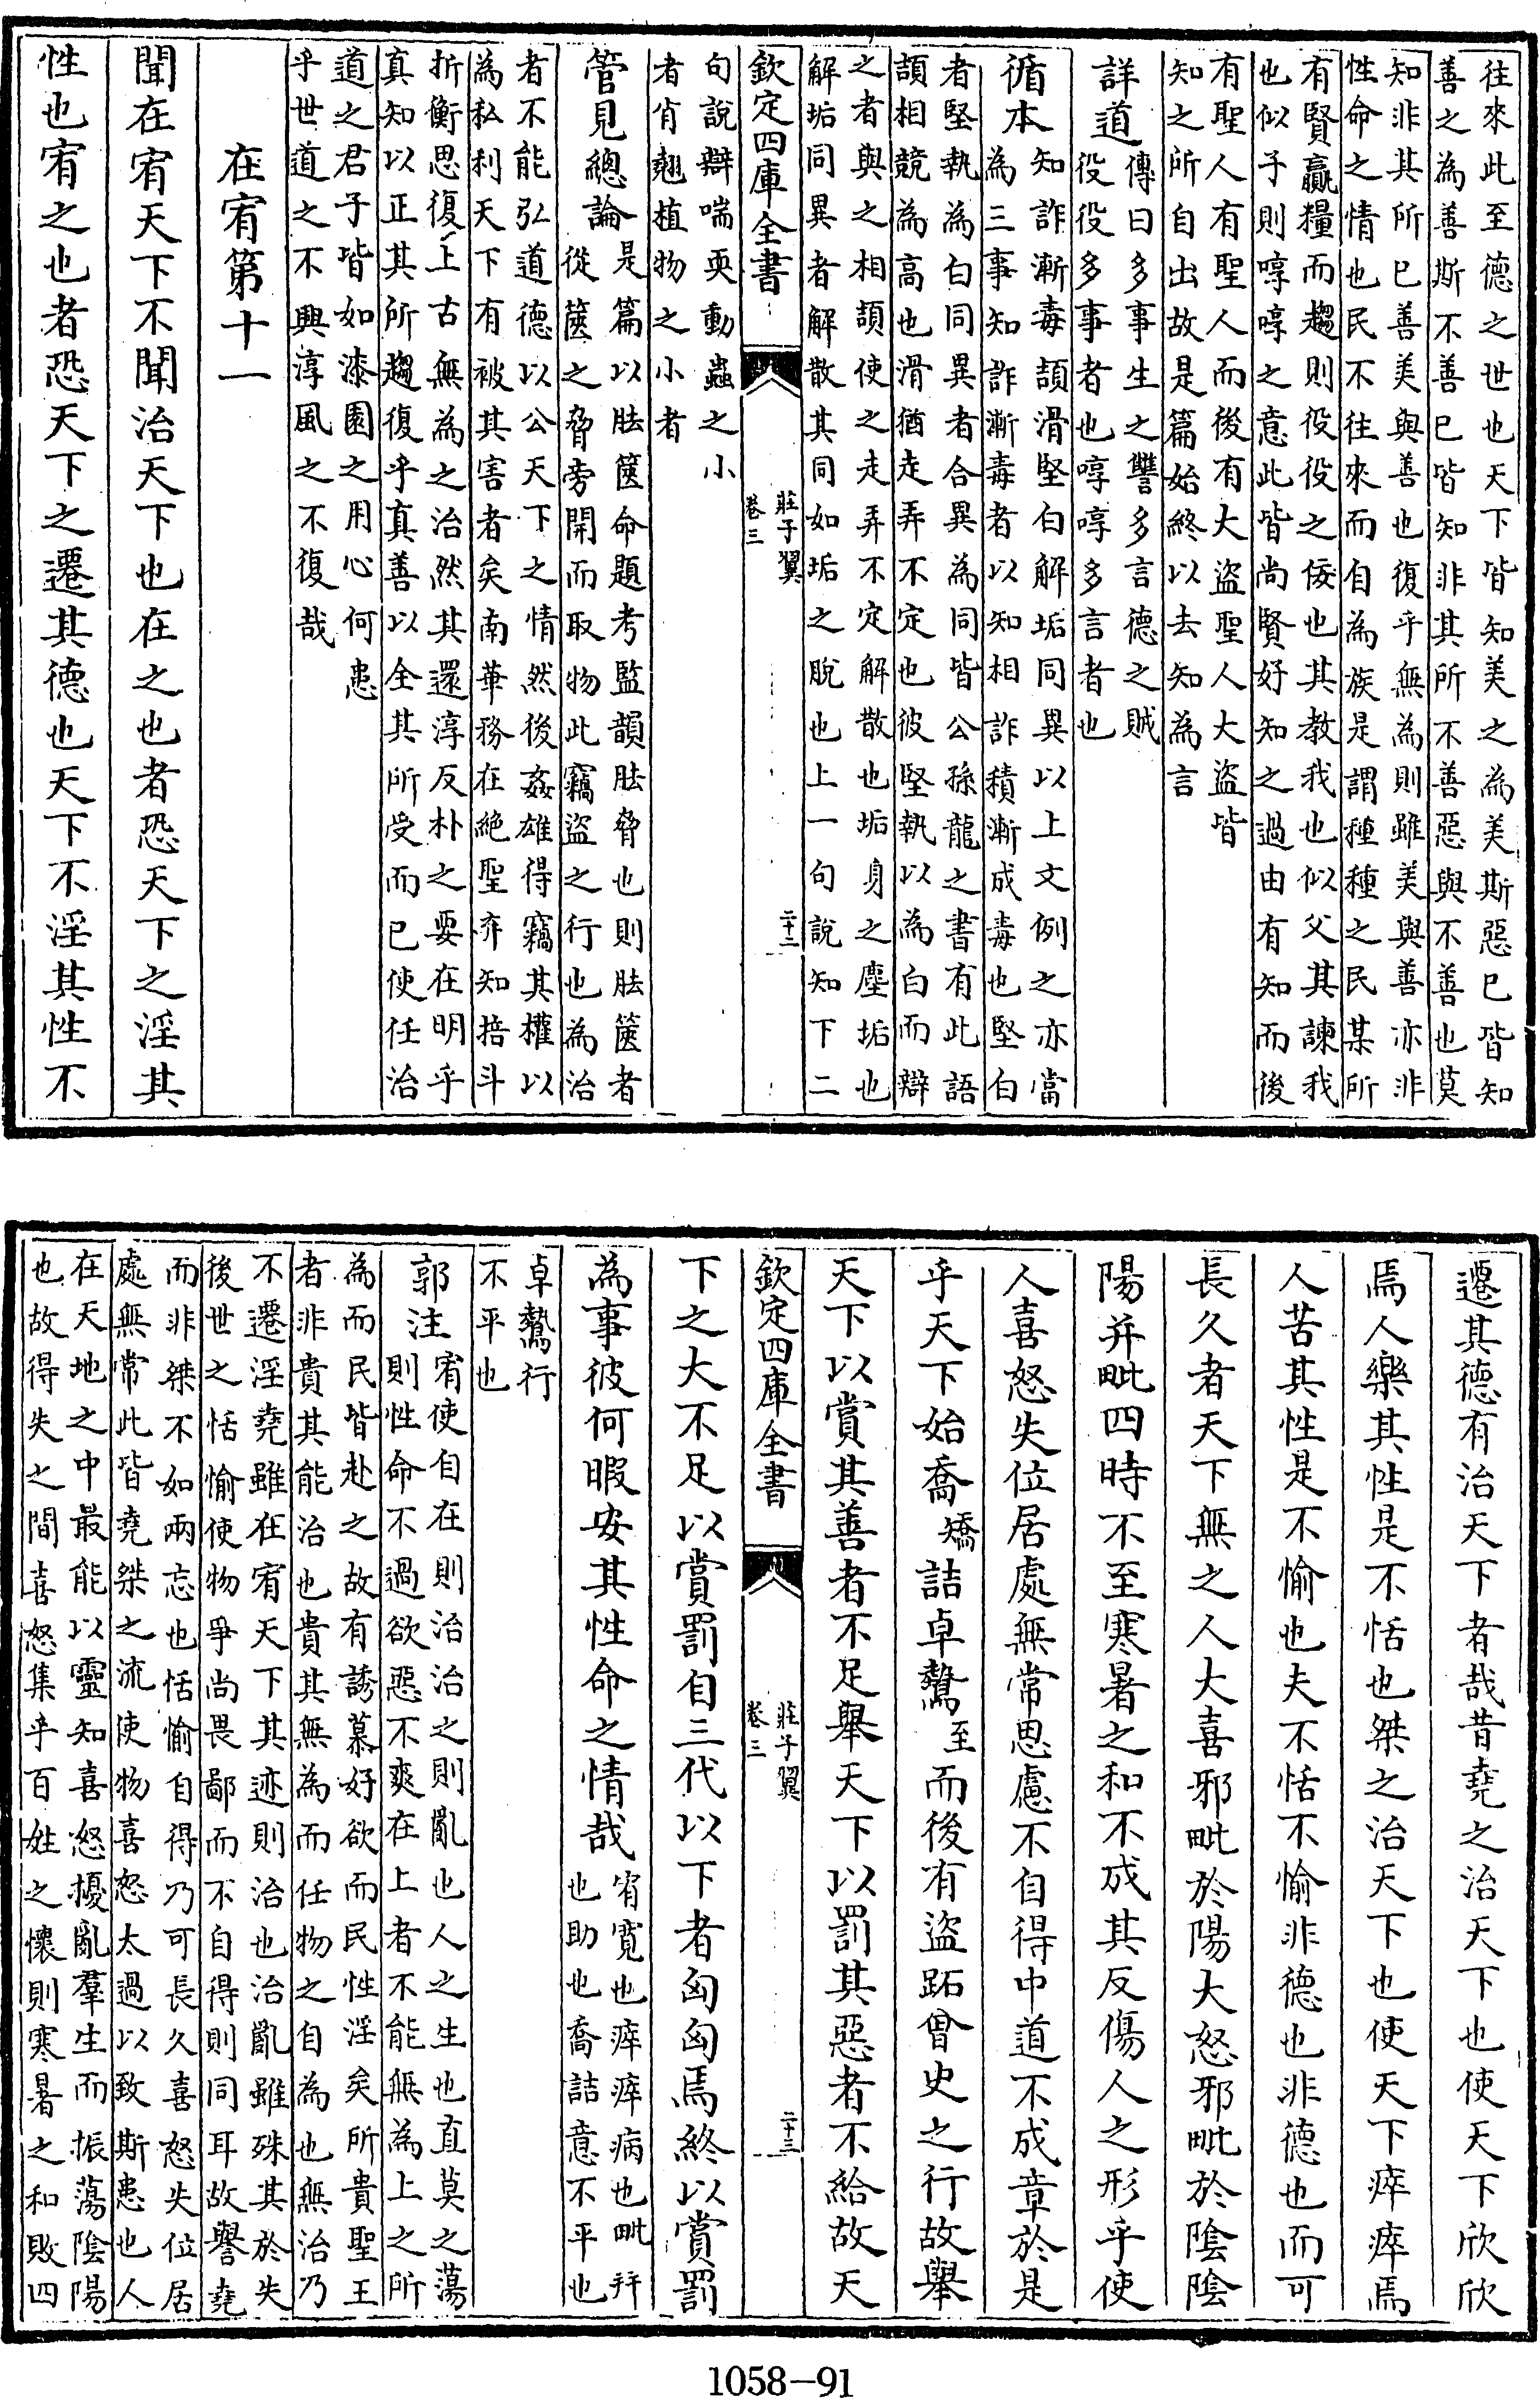 往來此至德之世也天下皆知美之為美斯惡已皆知
善之為善斯不善已皆知非其所不善惡與不善也莫
知非其所已善美與善也復乎無為則雖美與善亦非
性命之情也民不往來而自為族是謂種種之民某所
有賢贏糧而趨則役役之佞也其教我也似父其諫我
也似子則啍啍之意此皆尚賢好知之過由有知而後
有聖人有聖人而後有大盜聖人大盜皆
知之所自出故是篇始終以去知為言
詳道 傳曰多事生之讐多言德之賊
役役多事者也啍啍多言者也
循本 知詐漸毒頡滑堅白解垢同異以上文例之亦當
為三事知詐漸毒者以知相詐積漸成毒也堅白
者堅執為白同異者合異為同皆公孫龍之書有此語
頡相競為高也滑猶走弄不定也彼堅執以為白而辯
之者與之相頡使之走弄不定解散也垢身之塵垢也
解垢同異者解散其同如垢之脫也上一句說知下二
欽定四庫全書
莊子翼
卷三
二十二
句說辯喘耎動蟲之小
者肖翹植物之小者
管見總論 是篇以胠篋命題考監韻胠脅也則胠篋者
從篋之脅旁開而取物此竊盜之行也為治
者不能弘道德以公天下之情然後姦雄得竊其權以
為私利天下有被其害者矣南華務在絶聖棄知掊斗
折衡思復上古無為之治然其還淳反朴之要在明乎
真知以正其所趨復乎真善以全其所受而已使任治
道之君子皆如漆園之用心何患
乎世道之不興淳風之不復哉
在宥第十一
聞在宥天下不聞治天下也在之也者恐天下之淫其
性也宥之也者恐天下之遷其德也天下不淫其性不
遷其德有治天下者哉昔堯之治天下也使天下欣欣
焉人樂其性是不恬也桀之治天下也使天下瘁瘁焉
人苦其性是不愉也夫不恬不愉非德也非德也而可
長久者天下無之人大喜邪毗於陽大怒邪毗於陰陰
陽并毗四時不至寒暑之和不成其反傷人之形乎使
人喜怒失位居處無常思慮不自得中道不成章於是
乎天下始喬矯詰卓鷙至而後有盜跖曾史之行故舉
天下以賞其善者不足舉天下以罰其惡者不給故天
欽定四庫全書
莊子翼
卷三
二十三
下之大不足以賞罰自三代以下者匈匈焉終以賞罰
為事彼何暇安其性命之情哉 宥寛也瘁瘁病也毗并
也助也喬詰意不平也
卓鷙行
不平也
郭注 宥使自在則治治之則亂也人之生也直莫之蕩
則性命不過欲惡不爽在上者不能無為上之所
為而民皆赴之故有誘慕好欲而民性淫矣所貴聖王
者非貴其能治也貴其無為而任物之自為也無治乃
不遷淫堯雖在宥天下其迹則治也治亂雖殊其於失
後世之恬愉使物爭尚畏鄙而不自得則同耳故譽堯
而非桀不如兩忘也恬愉自得乃可長久喜怒失位居
處無常此皆堯桀之流使物喜怒太過以致斯患也人
在天地之中最能以靈知喜怒擾亂羣生而振蕩陰陽
也故得失之間喜怒集乎百姓之懷則寒暑之和敗四
1058-91